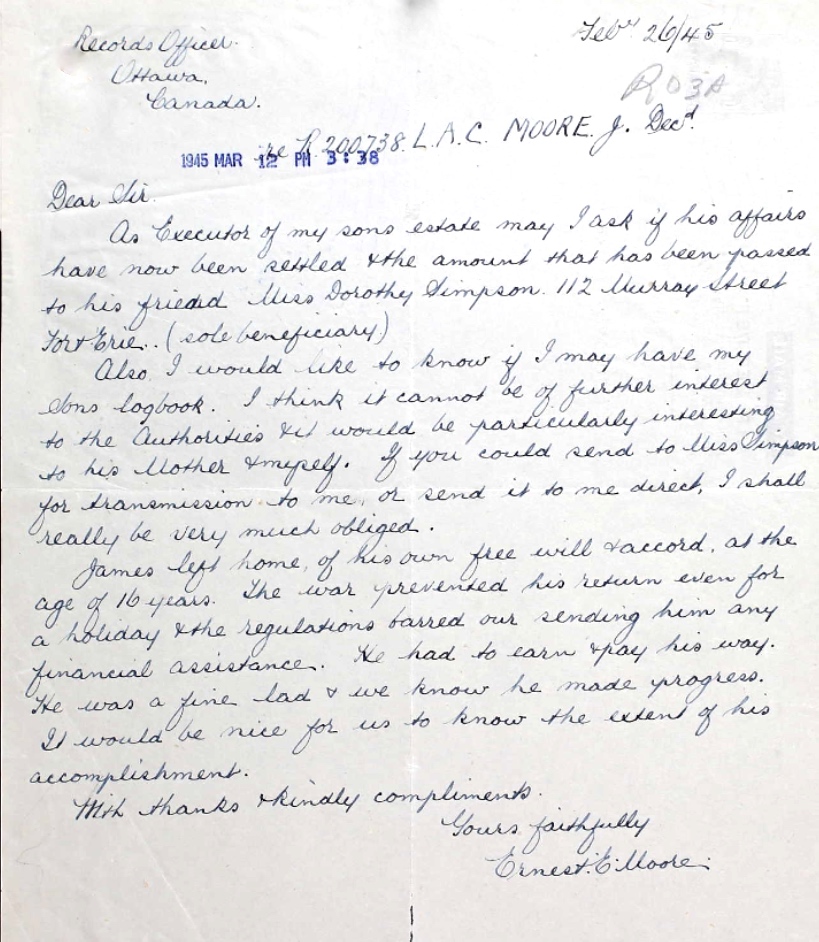 Records Officer.
Feby 26/45
Ottawa,
Canada.
R03A
re R 200738. L.A.C. MOORE. J. Decd.
1945 MAR 12 PM 3:38
Dear Sir.
As Executor of my sons estate may I ask if his affairs
have now been settled & the amount that has been passed
to his friend Miss Dorothy Simpson. 112 Murray Street
Fort Erie.. (sole beneficiary)
Also, I would like to know if I may have my
sons logbook. I think it cannot be of further interest
to the Authorities & it would be particularly interesting
to his Mother & myself. If you could send to Miss Simpson
for transmission to me, or send it to me direct, I shall
really be very much obliged.
James left home, of his own free will & accord, at the
age of 16 years. The war prevented his return even for
a holiday & the regulations barred our sending him any
financial assistance. He had to earn & pay his way.
He was a fine lad & we know he made progress.
It would be nice for us to know the extent of his
accomplishment.
With thanks & kindly compliments.
Yours faithfully
Ernest. E. Moore.